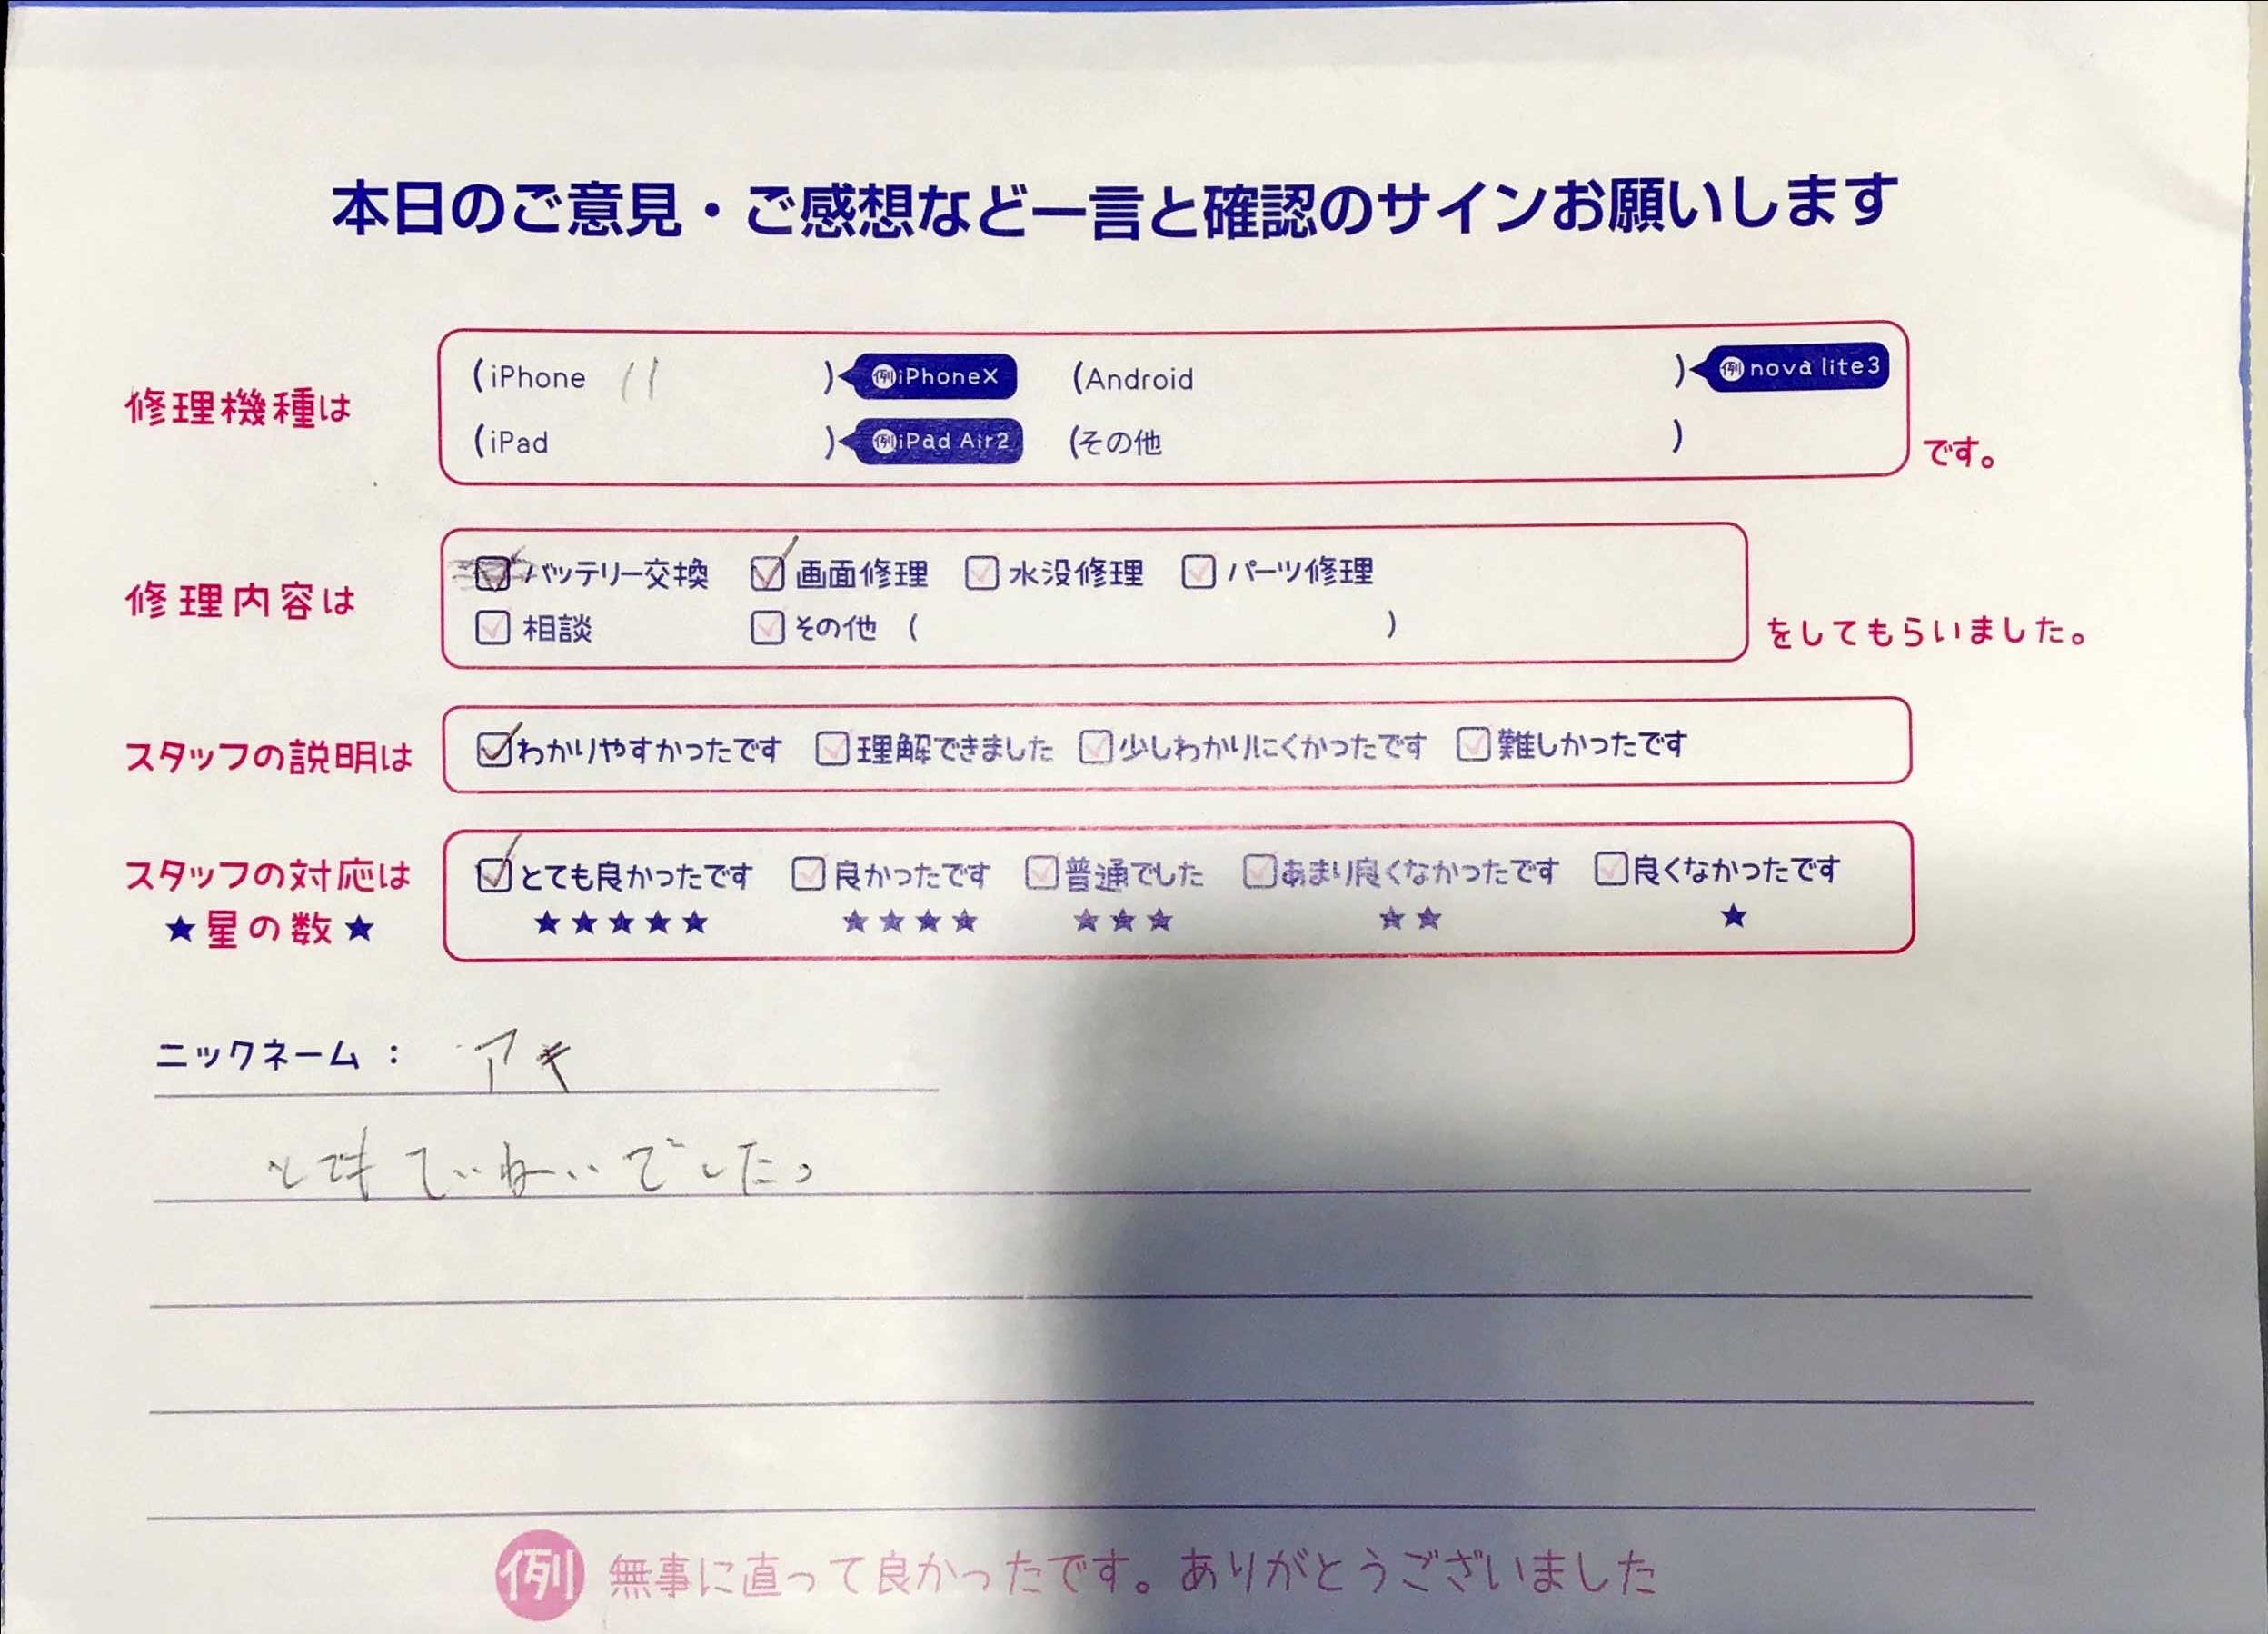 本日のご意見・ご感想など一言と確認のサインお願いします
修理機種は
(iPhone 11 ) 例iPhoneX (Android ) 例 nova lite3
(iPad ) 例iPad Air2 (その他 ) です。
修理内容は
バッテリー交換 画面修理 水没修理 パーツ修理
相談 その他 ( ) をしてもらいました。
スタッフの説明は わかりやすかったです 理解できました 少しわかりにくかったです 難しかったです
スタッフの対応は とても良かったです 良かったです 普通でした あまり良くなかったです 良くなかったです
★星の数★ ★★★★★ ★★★★ ★★★ ★★ ★
ニックネーム： アキ
とてもていねいでした。
例 無事に直って良かったです。ありがとうございました